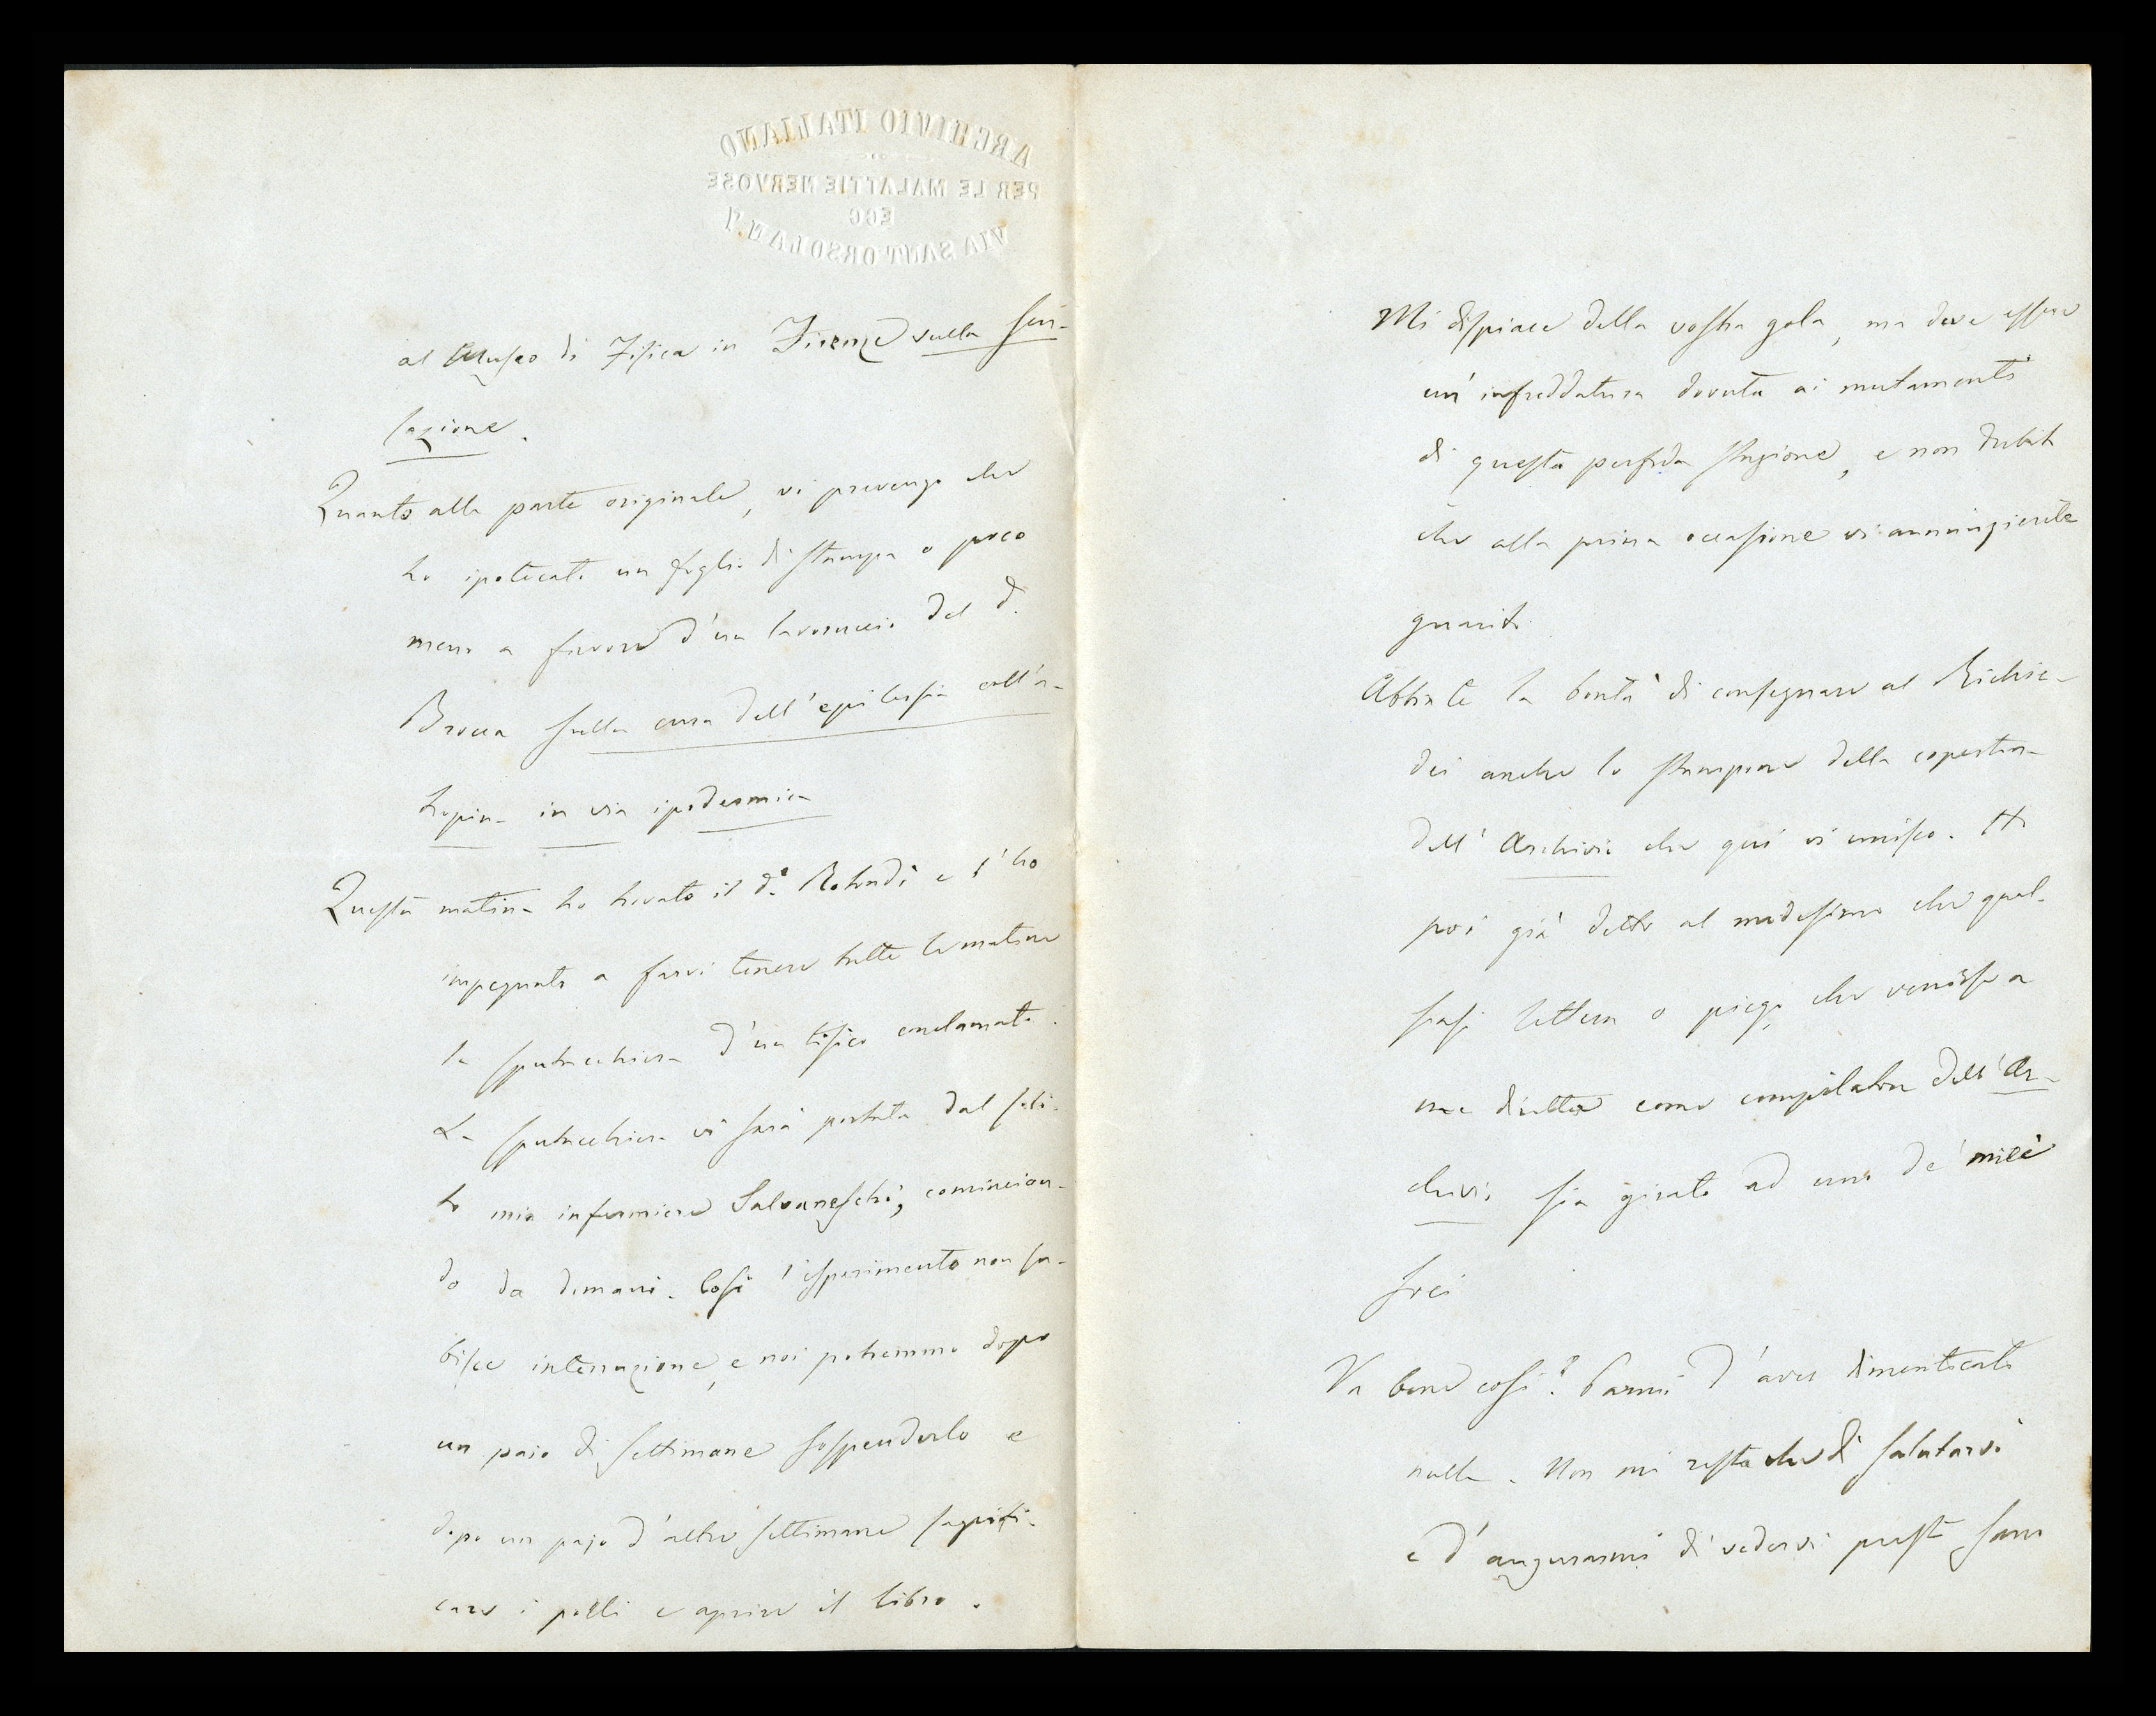 ARCHIVIO ITALIANO
PER LE MALATTIE NERVOSE
ECC
VIA SANT'ORSOLA N.
al Museo di Fisica in Firenze sulla sen-
sazione.
Quanto alla parte originale, vi prevengo che
ho ipotecato un foglio di stampa o poco
meno a favore d'un lavoruccio del d.
Brocca sulla cura dell'epilessia coll'a-
tropina in via ipodermica
Questa matina ho trovato il d.r Rotondi e l'ho
impegnato a farvi tenere tutte le matine
la sputacchiera d'un tisico conclamato.
La sputacchiera vi sarà portata dal soli-
to mio infermiere Salvaneschi, comincian-
do da domani. Così l'esperimento non su-
bisce interruzione, e noi potremmo dopo
un paio di settimane sospenderlo e
dopo un pajo d'altre settimane sagrifi-
care i polli e aprire il libro.
Mi dispiace della vostra gola, ma deve essere
un'infreddatura dovuta ai mutamenti
di questa perfida stagione, e non dubito
che alla prima occasione vi annunzierete
guarito.
Abbiate la bontà di consegnare al Richie-
dei anche lo stampone della copertina
dell'Archivio che quì vi unisco. Ho
poi già detto al medesimo che qual-
siasi lettera o piego che venisse a
me diretto come compilatore dell'Ar-
chivio sia girato ad uno de' miei
soci
Va bene così? Parmi d'aver dimenticato
nulla. Non mi resta che di salutarvi
e d'augurarmi di vedervi presto sano